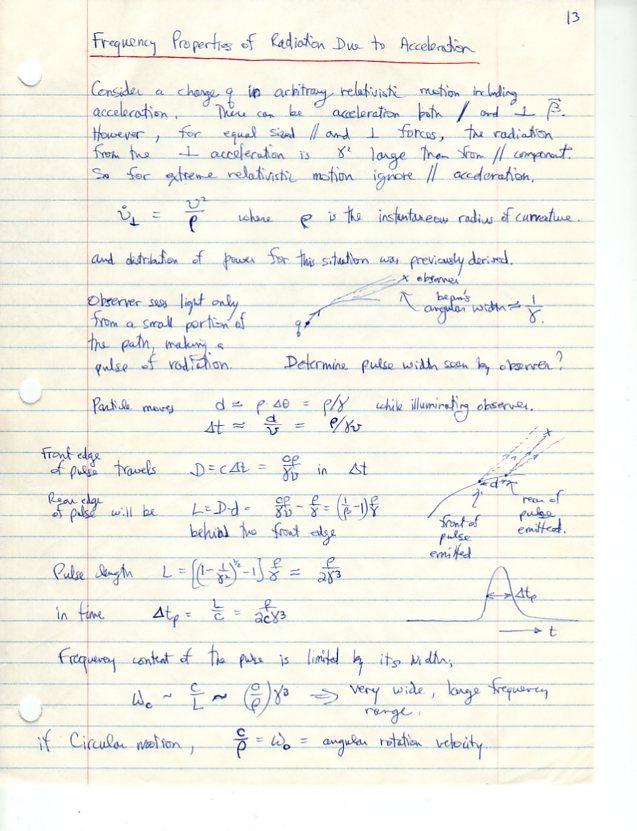 13
Frequency Properties of Radiation Due to Acceleration
Consider a charge q in arbitrary relativistic motion including
acceleration. There can be acceleration both // and ⊥ β⃗.
However, for equal sized // and ⊥ forces, the radiation
from the ⊥ acceleration is γ² large than from // component.
So for extreme relativistic motion ignore // acceleration.
v̇⊥ = v²/ρ where ρ is the instantaneous radius of curvature.
and distribution of power for this situation was previously derived.
x observer
Observer sees light only
from a small portion of
the path, making a
pulse of radiation.
q
beam's
angular width ≈ 1/γ.
Determine pulse width seen by observer?
Particle moves d ≈ ρ Δθ = ρ/γ while illuminating observer.
Δt ≈ d/v = ρ/γv
Front edge
of pulse travels D = cΔt = cρ/γv in Δt
Rear edge
of pulse will be L = D-d = cρ/γv - ρ/γ = (1/β - 1) ρ/γ
behind the front edge
x
d
front of
pulse
emitted
rear of
pulse
emitted.
Pulse length L = [(1 - 1/γ²)^½ - 1] ρ/γ ≈ ρ/2γ³
in time Δtp = L/c = ρ/2cγ³
Δtp
t
Frequency content of the pulse is limited by its width,
ωc ~ c/L ~ (c/ρ)γ³ ⇒ very wide, large frequency
range.
if Circular motion, c/ρ = ω₀ = angular rotation velocity.